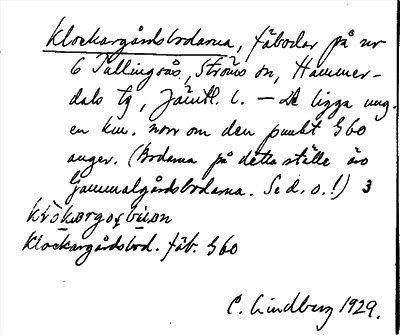 Klockargårdsbodarna, fäbodar på nr
6 Tullingsås, Ströms sn, Hammer-
dals tg, Jämtl. l. — De ligga ung.
en km. norr om den punkt G60
anger. (Bodarna på detta ställe äro
Gammalgårdsbodarna. Se d. o.!) 3
Klockargårdsbod. fäb. G60
C. Lindberg 1929.